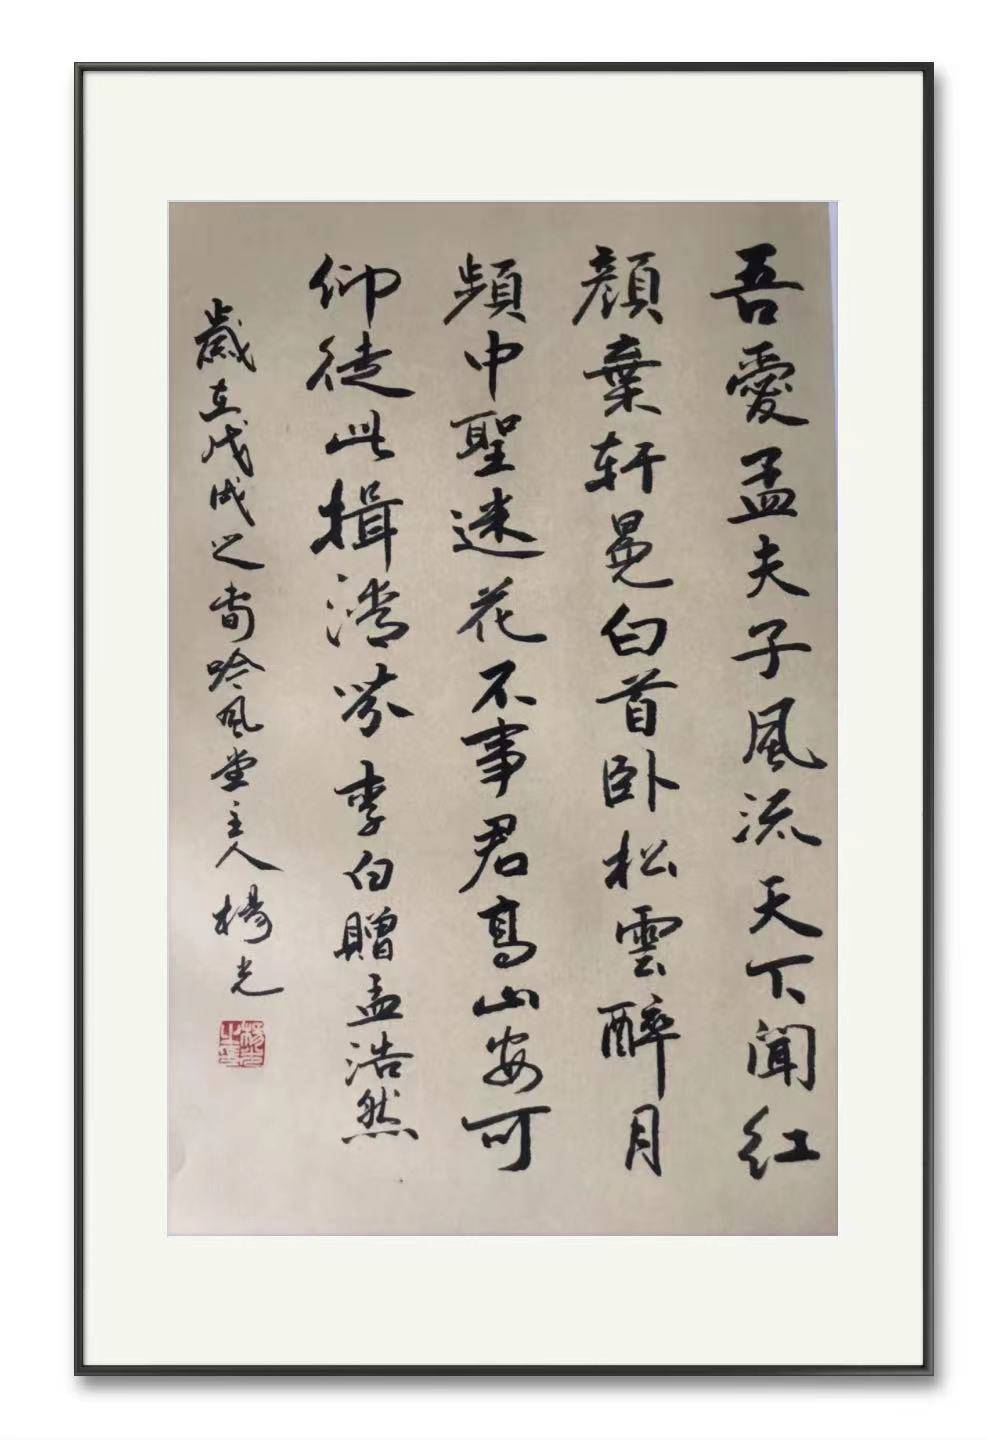 吾愛孟夫子風流天下聞红
顏棄轩冕白首卧松雲醉月
頻中聖迷花不事君高山安可
仰徒此揖清芬李白贈孟浩然
歲在戊戌之吟風堂主人楊光